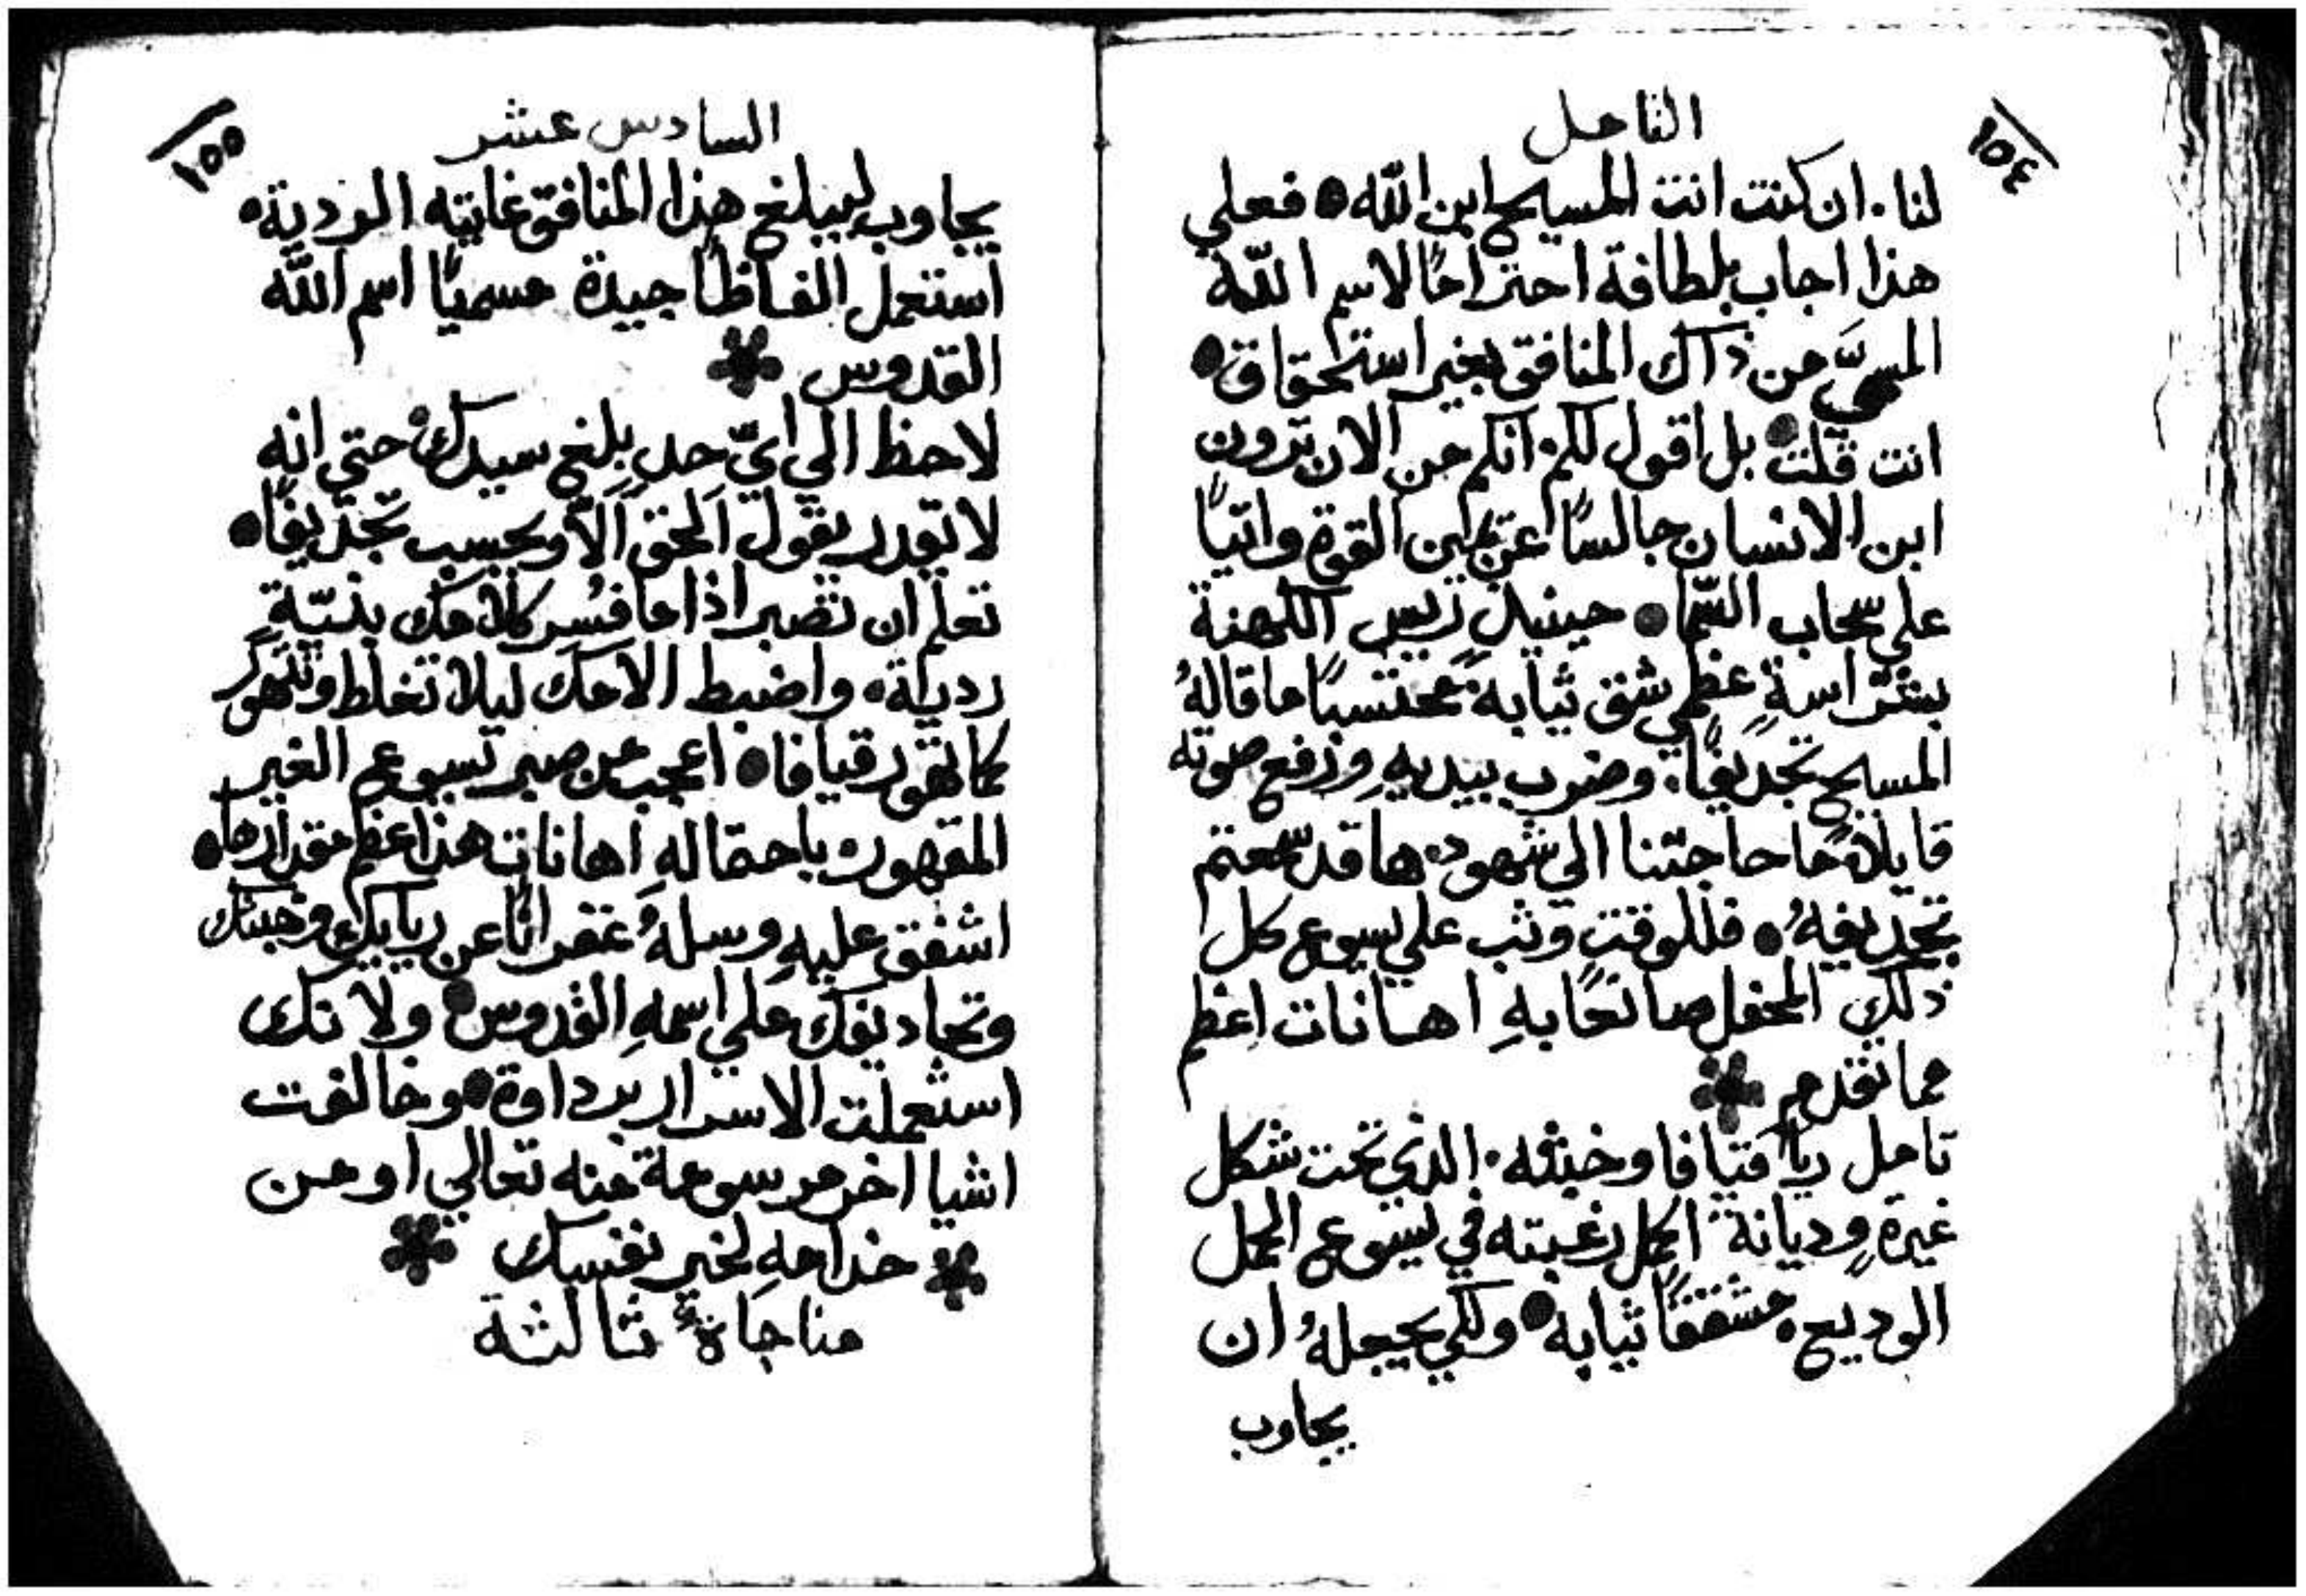 ١٥٤
التامل
لنا. ان كنت انت المسيح ابن اللّه • فعلي
هذا اجاب بلطافة احترامًا لاسم اللّه
المسمَّي من ذاك المنافق بغير استحقاق •
انت قلت • بل اقول لكم. انكم من الان ترون
ابن الانسان جالسًا عن يمين القوة واتيًا
علي سحاب السّما • حينيذٍ ريس الكهنة
بشراسةٍ عظمي شق ثيابه محتسبًا ما قالهُ
المسيح تجديفًا. وضرب بيديهِ ورفع صوته
قايلاً ما حاجتنا الي شهود. ها قد سمعتم
تجديفهُ • فللوقت وثب علي يسوع كل
ذلك المحفل صانعًا بهِ اهانات اعظم
مما تقدم
تامل ريا قيافا وخبثه. الذي تحت شكل
غيرةٍ وديانة اكمل رغبته في يسوع الحمل
الوديع. مشققًا ثيابه • ولكي يجعلهُ ان
يجاوب
١٥٥
السادس عشر
يجاوب ليبلغ هذا المنافق غايته الردية.
استعمل الفاظًا جيدة مسميًا اسم اللّه
القدوس
لاحظ الي ايّ حدٍ بلغ سيدك. حتي انه
لا تقدر يقول الحق الاّ ويحسب تجديفًا •
تعلم ان تصبر اذا ما فسُر كلامك بنيّةٍ
رديةٍ. واضبط الامك ليلا تغلط وتتهور
كما تهور قيافا • اعجب من صبر يسوع الغير
المقهور. باحتماله اهانات هذا عظم مقدارها •
اشفق عليهِ وسلهُ غفرانًا عن رياييك وخبثك
وتجاديفك علي اسمهِ القدوس • ولانك
استعملت الاسرار برداوة • وخالفت
اشيا اخر مرسومة منه تعالي او من
خدامهِ لخير نفسك
مناجاةٌ ثالثة